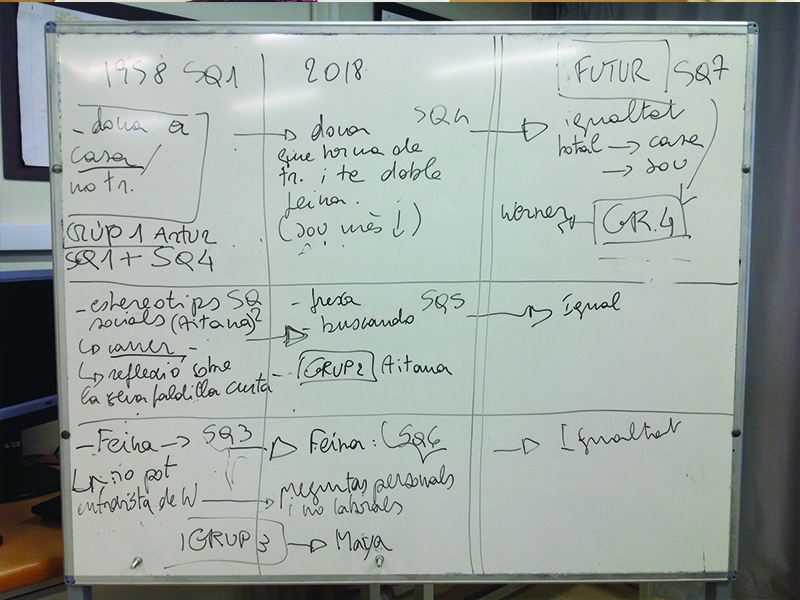 1958 SQ1
2018
FUTUR SQ7
- dona a
casa
no tr.
GRUP 1 Artur
SQ1 + SQ4
dona SQ4
que torna de
tr. i te doble
feina.
(sou més ↓)
igualtat
total → casa
→ sou
Werner
GR.4
- estereotips SQ
socials (Aitana) 2
carrer -
↳ reflexio sobre
la seva faldilla curta -
-
- buscando SQ5
GRUP 2 Aitana
Igual
- Feina → SQ3
↳ no pot
entrevista de W
GRUP 3 → Maya
Feina: SQ6
preguntas personals
i no laborals
Igualtat